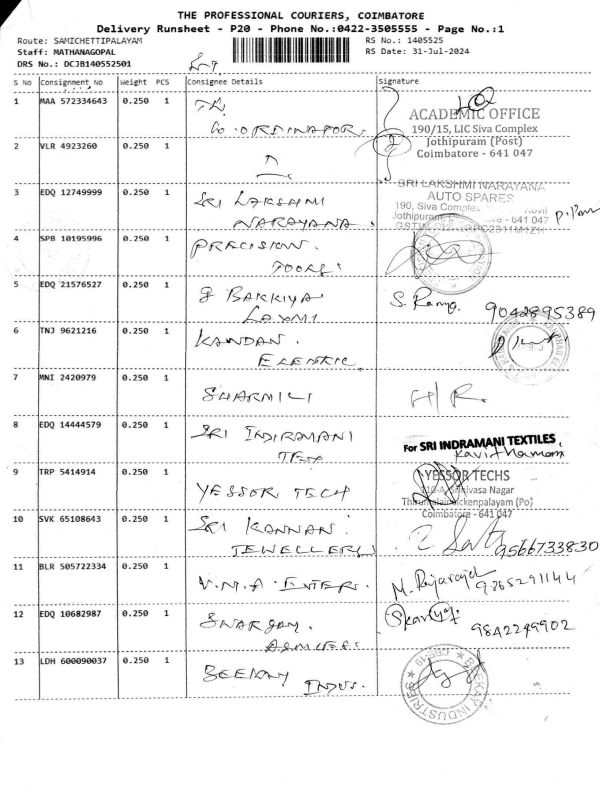 THE PROFESSIONAL COURIERS, COIMBATORE
Delivery Runsheet - P20 - Phone No.:0422-3505555 - Page No.:1
Route: SAMICHETTIPALAYAM
RS No.: 1405525
Staff: MATHANAGOPAL
RS Date: 31-Jul-2024
DRS No.: DCJB140552501
S No Consignment No Weight PCS Consignee Details Signature
1 MAA 572334643 0.250 1
CO-ORDINATOR.
ACADEMIC OFFICE
190/15, LIC Siva Complex
Jothipuram (Post)
Coimbatore - 641 047
2 VLR 4923260 0.250 1
3 EDQ 12749999 0.250 1 SRI LAKSHMI
NARAYANA.
SRI LAKSHMI NARAYANA
AUTO SPARES
190, Siva Complex
4 SPB 10195996 0.250 1 PRECISION.
TOOLS.
5 EDQ 21576527 0.250 1 BAKKIYA
LAXMI
S. Ramya. 9042895389
6 TNJ 9621216 0.250 1 KANDAN.
ELECTRIC.
7 MNI 2420979 0.250 1 SHARMILI
H/R.
8 EDQ 14444579 0.250 1 SRI INDIRAMANI
TEX
For SRI INDRAMANI TEXTILES,
9 TRP 5414914 0.250 1 YESSOR TECH
YESSOR TECHS
Coimbatore - 641 047
10 SVK 65108643 0.250 1 SRI KANNAN.
JEWELLERS
9566733830
11 BLR 505722334 0.250 1 V.M.A. ENTER.
M. Rajarajan
9865291144
12 EDQ 10682987 0.250 1
9842249902
13 LDH 600090037 0.250 1 BEEKAY
INDUS.
BEEKAY INDUSTRIES